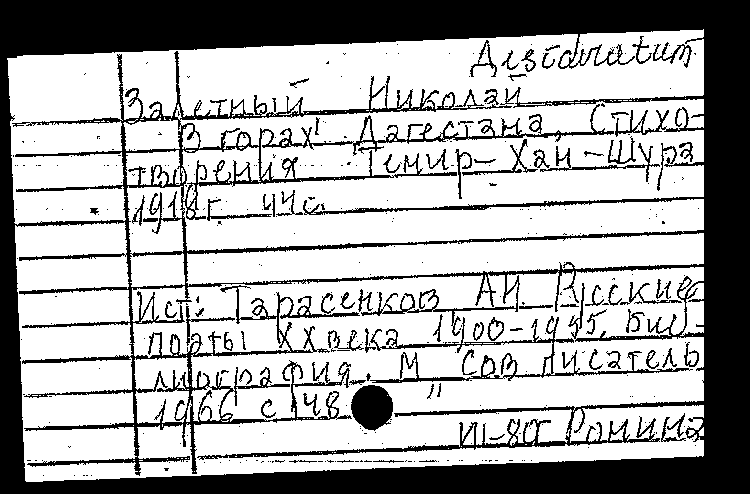 Дезidеratum
Залетный Николай
В горах Дагестана, Стихо-
творения Темир-Хан-Шура
1918г. 44с.
Ист: Тарасенков А.Н. Русские
поэты XX века 1900-1955. Биб-
лиография. М „Сов писатель
1966 с 148 "
III-80 Ромина